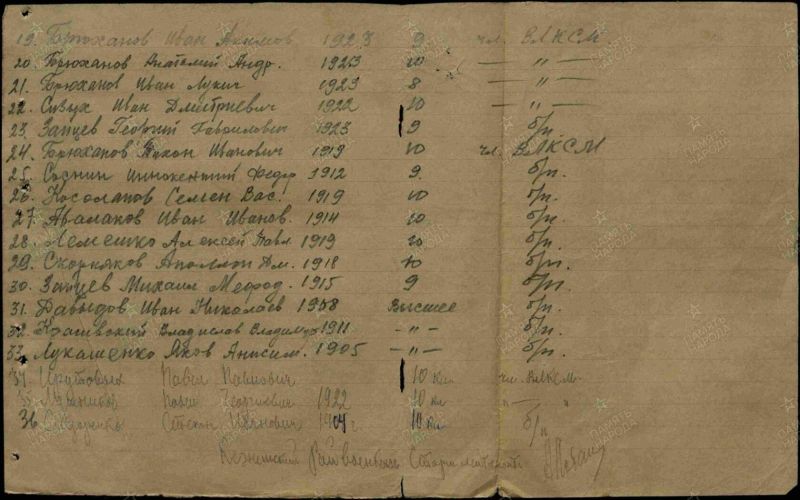 19. Брюханов Иван Акимов 1923 9 чл. ВЛКСМ
20. Брюханов Анатолий Андр. 1923 10 — " —
21. Брюханов Иван Лукич 1923 8 — " —
22. Сивух Иван Дмитриевич 1922 10 — " —
23. Зайцев Георгий Гаврилович 1923 9 б/п.
24. Брюханов Тихон Иванович 1919 10 чл. ВЛКСМ
25. Соснин Иннокентий Федор 1912 9. б/п.
26. Косолапов Семен Вас. 1919 10 б/п.
27. Арамаков Иван Иванов. 1914 10 б/п.
28. Лемешко Алексей Павл 1919 10 б/п.
29. Скорняков Аполлон Дм. 1918 10 б/п.
30. Зайцев Михаил Мефод. 1915 9 б/п.
31. Давыдов Иван Николаев 1908 Высшее б/п.
32. Владислав Владимир 1911 — " — б/п.
33. Лукашенко Яков Анисим. 1905 — " — б/п.
34. Павел Павлович 10 кл чл. ВЛКСМ.
35. Георгиевич 1922 10 кл — " — "
36. Степан Иванович 1904 г 10 кл б/п
Райвоенком
ПАМЯТЬ НАРОДА